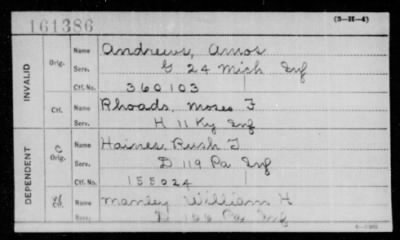 161386
(3-H-4)
INVALID
Orig.
Name Andrews, Amos
Serv. G 24 Mich Inf
Ctf. No. 360103
Ctf.
Name Rhoads, Moses F
Serv. H 11 Ky Inf
DEPENDENT
C
Orig.
Name Haines, Rush T
Serv. D 119 Pa Inf
Ctf. No. 155024
Ctf.
Name Manley William H
Serv. Pa Inf